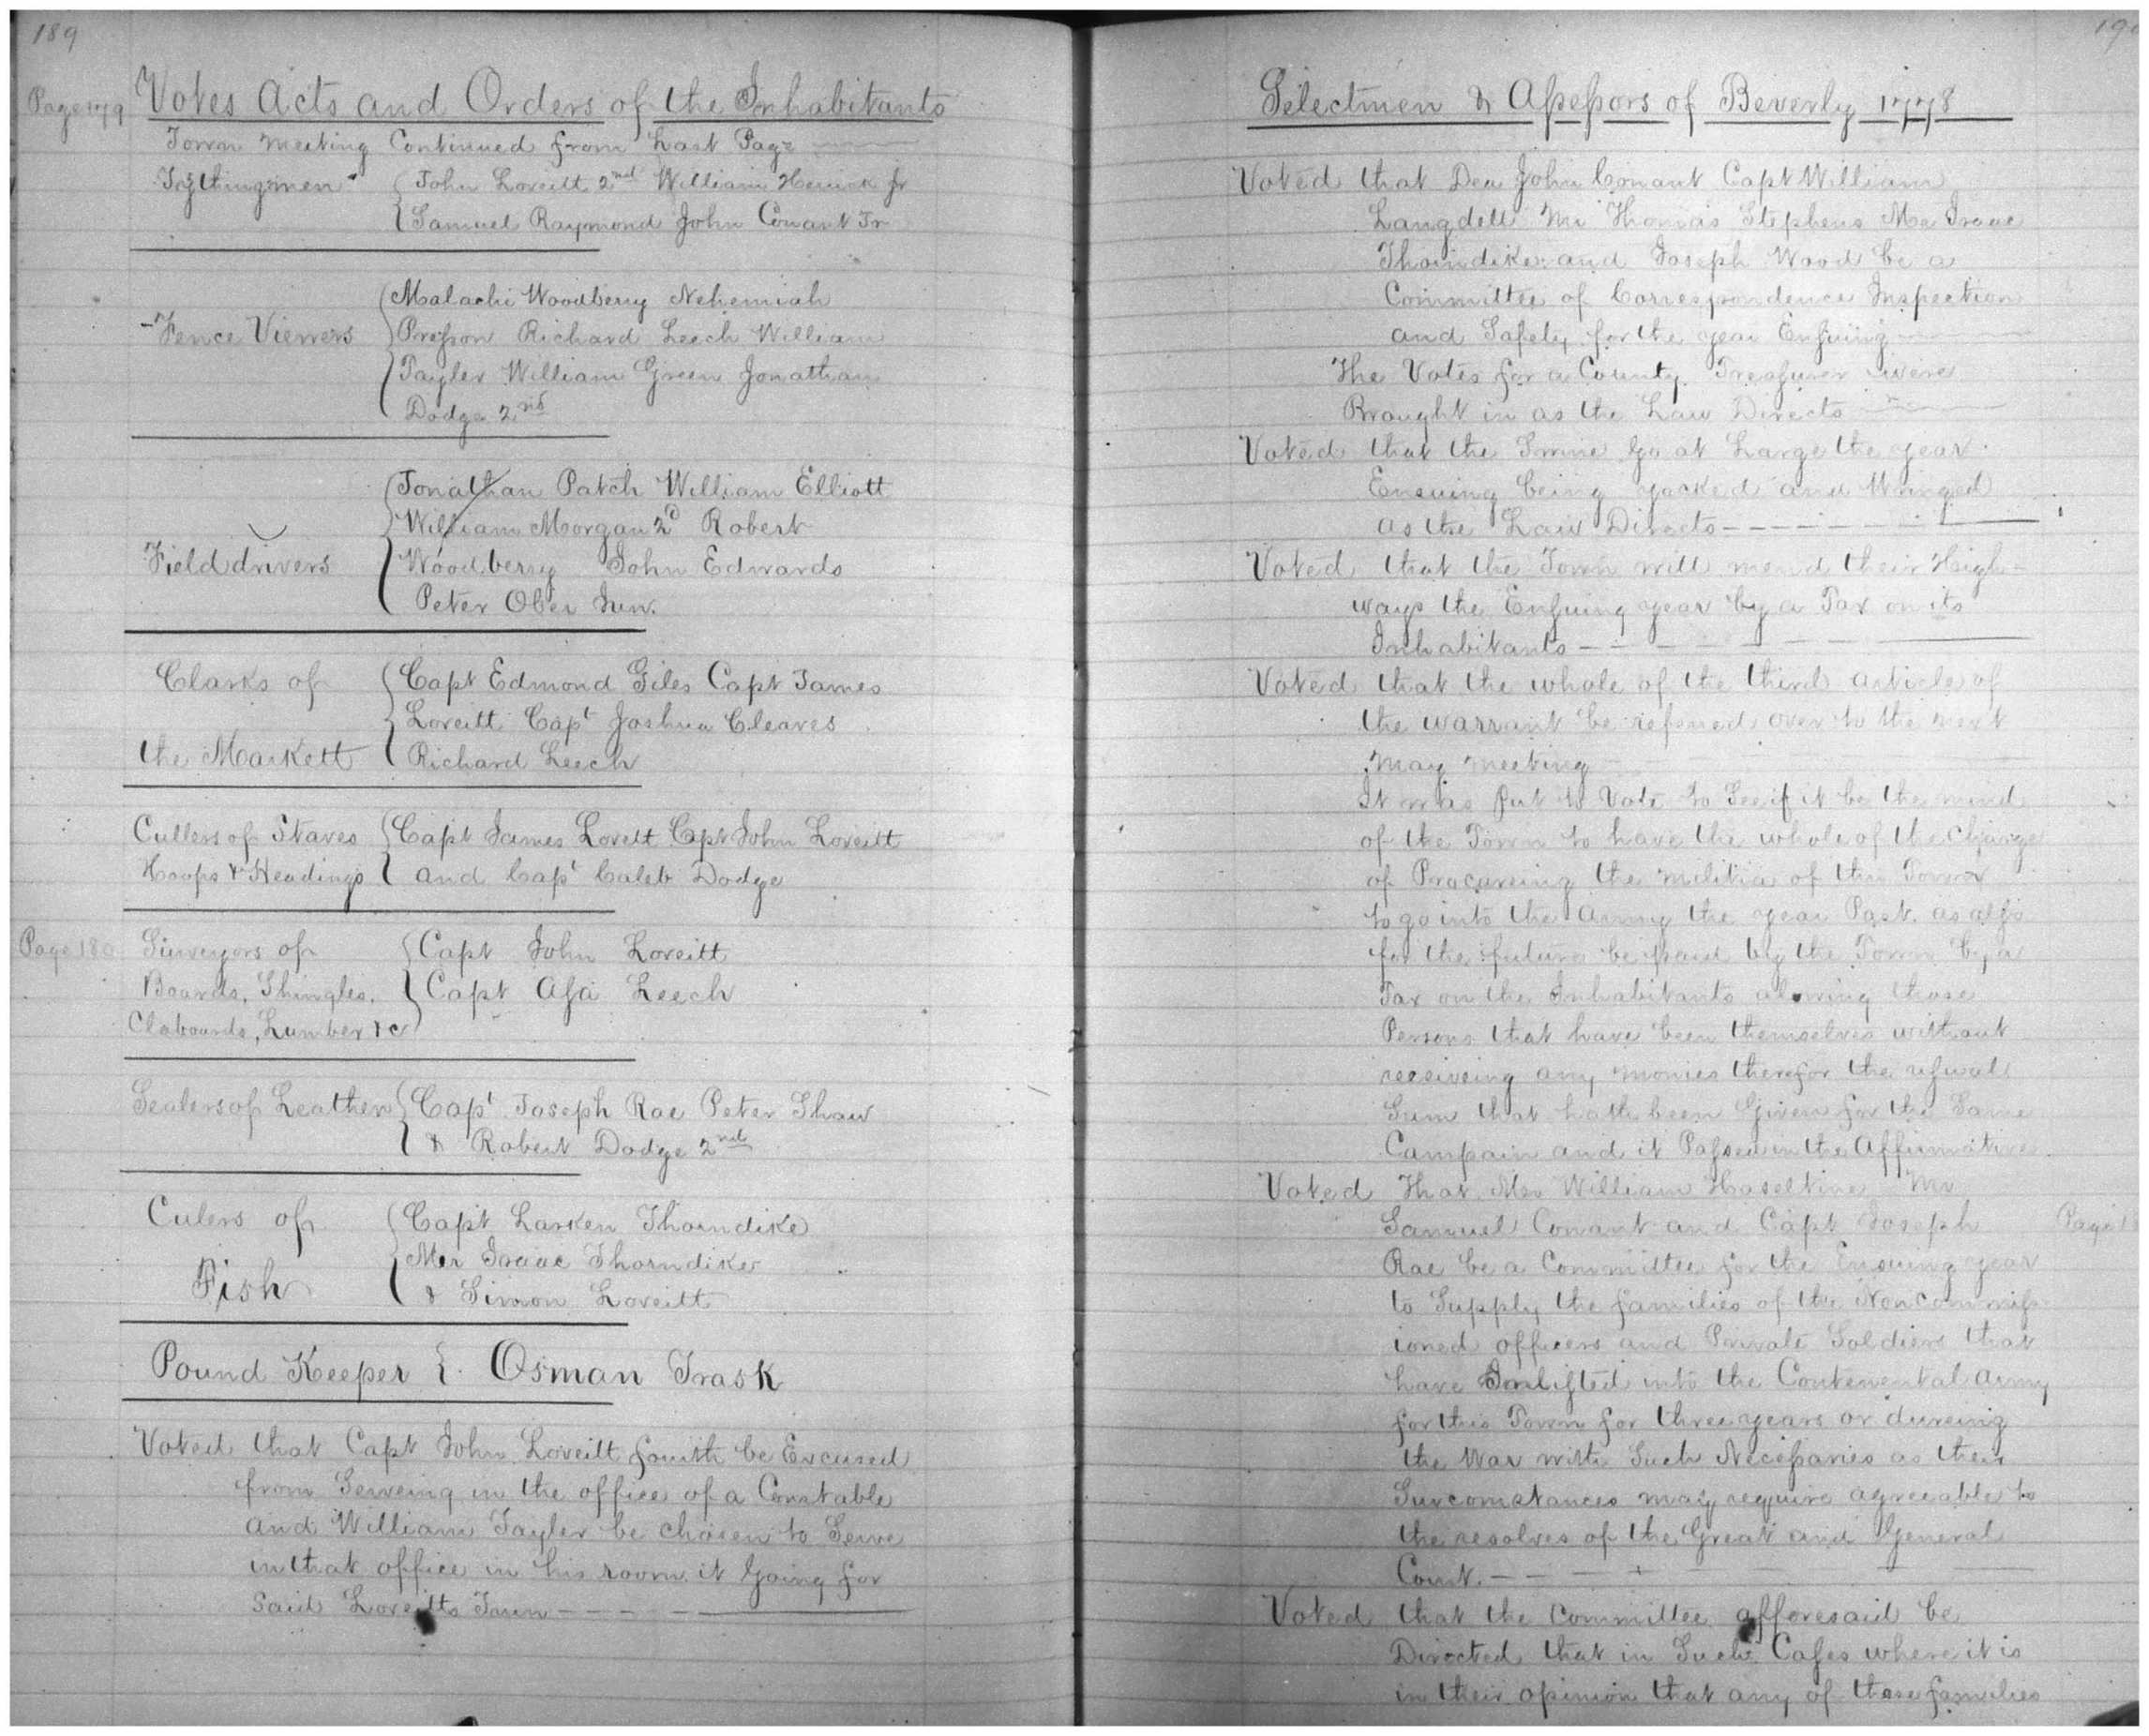 189
Page 179
Votes Acts and Orders of the Inhabitants
Town meeting Continued from Last Page
Tythingmen { John Loveitt 2nd William Herrick Jr
Samuel Raymond John Conant Jr
Fence Viewers { Malachi Woodberry Nehemiah
Preſson Richard Leech William
Tayler William Green Jonathan
Dodge 2nd
Field drivers { Jonathan Patch William Elliott
William Morgan 2d Robert
Woodberry John Edwards
Peter Ober Jun.
Clarks of the Markett { Capt Edmond Giles Capt James
Loveitt Capt Joshua Cleaves
Richard Leech
Cullers of Staves { Capt James Lovett Capt John Loveitt
Hoops & Headings and Capt Caleb Dodge
Page 180
Surveyors of { Capt John Loveitt
Boards, Shingles, Capt Aſa Leech
Clabourds, Lumber & c
Sealers of Leather { Capt Joseph Rae Peter Shaw
& Robert Dodge 2nd
Culers of Fish { Capt Larken Thorndike
Mr Isaac Thorndike
& Simon Loveitt
Pound Keeper { Osman Trask
Voted that Capt John Loveitt fourth be Excused
from Serveing in the office of a Constable
and William Tayler be chosen to Serve
in that office in his room it Going for
Said Loveitts Turn
190
Selectmen & Aſseſsors of Beverly 1778
Voted that Dea John Conant Capt William
Langdell Mr Thomas Stephens Mr Isaac
Thorndike and Joseph Wood be a
Committee of Correspondence Inspection
and Safety for the year Enſuing
The Votes for a County Treaſurer were
Brought in as the Law Directs
Voted that the Swine Go at Large the year
Ensuing being yocked and Wringed
as the Law Directs
Voted that the Town will mend their High-
ways the Enſuing year by a Tax on its
Inhabitants
Voted that the whole of the third article of
the warrant be refered over to the next
May meeting
It was put to Vote to See if it be the mind
of the Town to have the whole of the Charge
of Procureing the militia of the Town
to go into the Army the year Past as alſo
for the future be paid by the Town by a
Tax on the Inhabitants alowing those
Persons that have been themselves without
receiveing any monies therefor the uſual
Sum that hath been Given for the Same
Campain and it Paſsed in the Affirmative
Voted That Mr William Haseltine Mr
Samuel Conant and Capt Joseph
Page
Rae be a Committee for the Ensuing year
to Supply the families of the Noncommiſs
ioned officers and Private Soldiers that
have Inliſted into the Contenental Army
for this Town for three years or dureing
the War with Such Neceſsaries as their
Surcomstances may require agreeable to
the resolves of the Great and General
Court.
Voted that the Committee afforesaid be
Directed that in Such Caſes where it is
in their opinion that any of those families